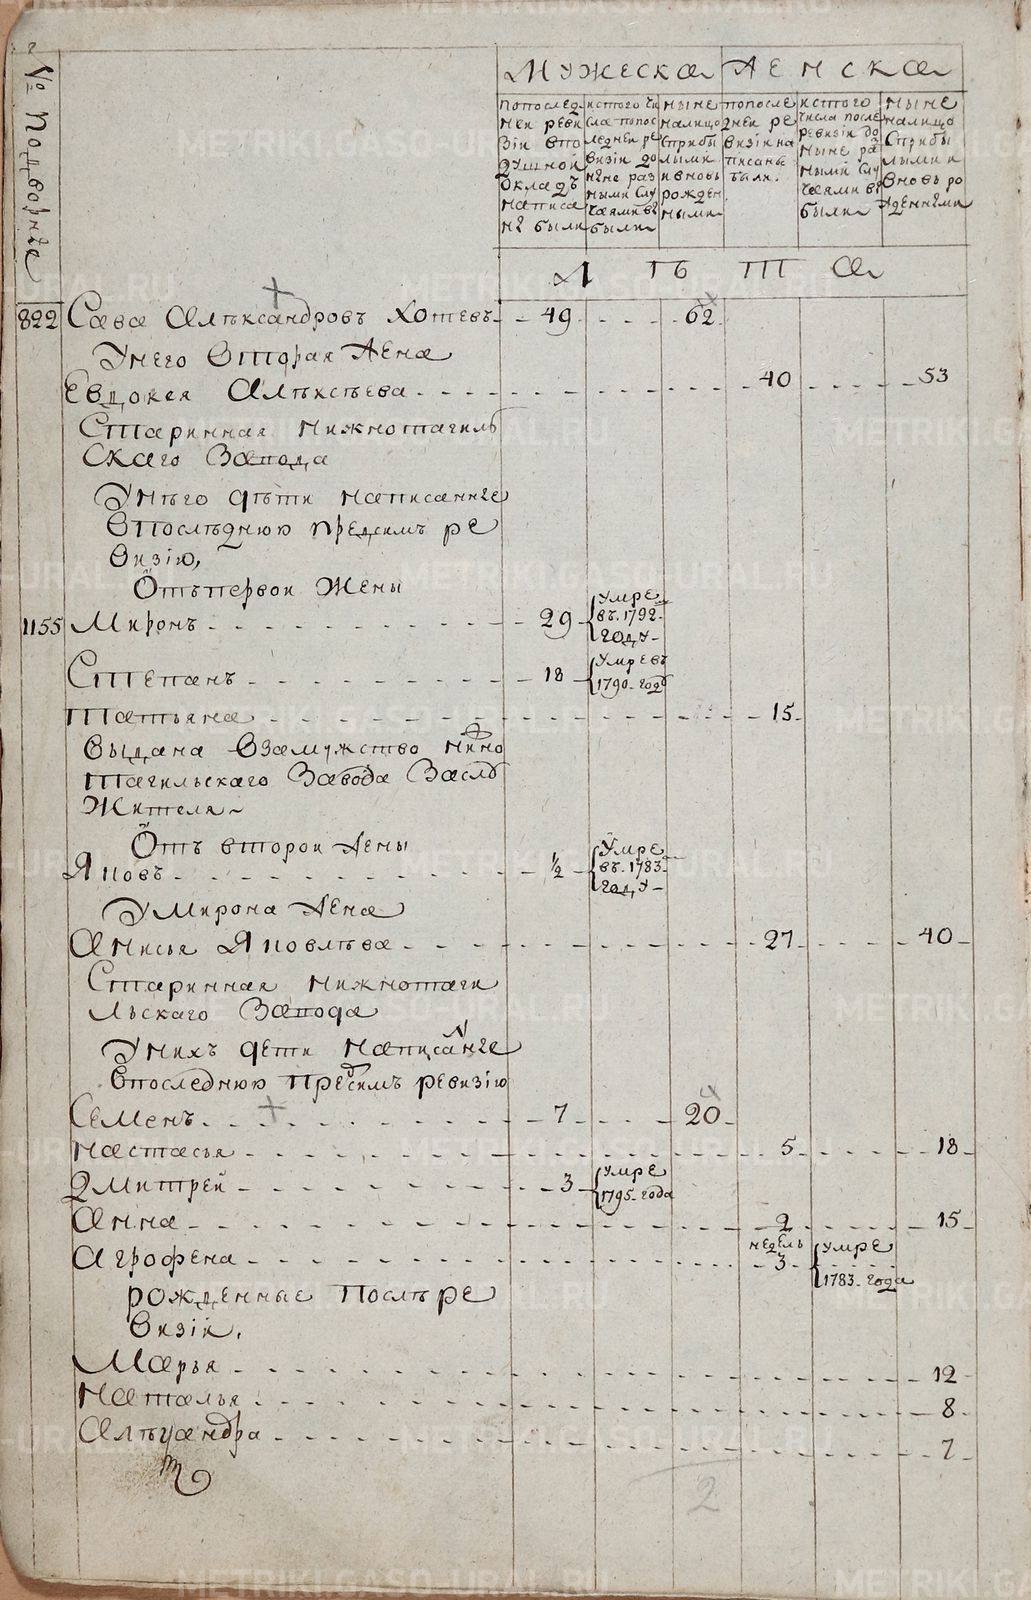 № Подворные
Мужеска Женска
по последней ревизіи в подушной окладъ написаны были
ис того числа после последней ревизіи до ныне разными случаями выбыли
ныне на лицо с прибылыми и вновь рожденными
по последней ревизіи написаны были.
ис того числа после ревизіи до ныне разными случаями выбыли
ныне на лицо с прибылыми и вновь рожденными
Лѣта
822 Сава Алѣксандровъ Хотевъ 49 62
У него вторая жена
Евдокея Алѣксѣева 40 53
Старинная нижнотагиль
скаго завода
У нѣго дѣти написанные
в последнюю пред симъ ре
визію,
Отъ первои жены
1155 Миронъ 29 умре въ 1792 году
Степанъ 18 умре въ 1790 году
Татьяна 15
выдана в замужство нижно
тагильскаго завода за
жителя
Отъ второи жены
Яковъ ½ умре въ 1783 году
У Мирона жена
Анисья Яковлѣва 27 40
Старинная нижнотаги
льскаго завода
У нихъ дети написанные
в последнюю пред симъ ревизію
Семенъ 7 20
Настасья 5 18
Дмитрей 3 умре 1795 года
Анна 2 15
Агрофена недель 3 умре 1783 года
рожденные послѣ ре
визіи.
Марья 12
Наталья 8
Алѣксандра 7
2